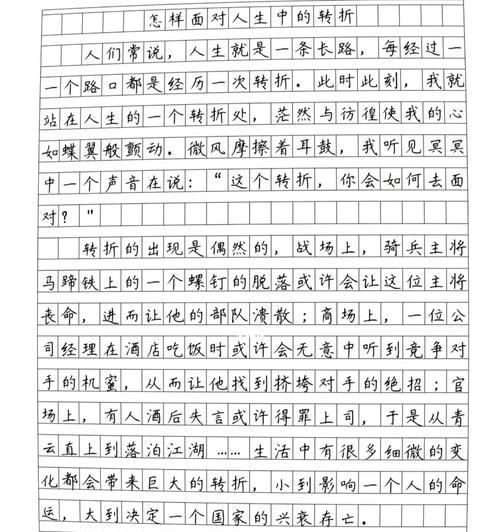 怎样面对人生中的转折
人们常说，人生就是一条长路，每经过一
一个路口都是经历一次转折。此时此刻，我就
站在人生的一个转折处，茫然与彷徨使我的心
如蝶翼般颤动。微风摩擦着耳鼓，我听见冥冥
中一个声音在说：“这个转折，你会如何去面
对？"
转折的出现是偶然的，战场上，骑兵主将
马蹄铁上的一个螺钉的脱落或许会让这位主将
丧命，进而让他的部队溃散；商场上，一位公
司经理在酒店吃饭时或许会无意中听到竞争对
手的机蜜，从而让他找到挤垮对手的绝招；官
场上，有人酒后失言或许得罪上司，于是从青
云直上到落泊江湖……生活中有很多细微的变
化都会带来巨大的转折，小到影响一个人的命
运，大到决定一个国家的兴衰存亡。